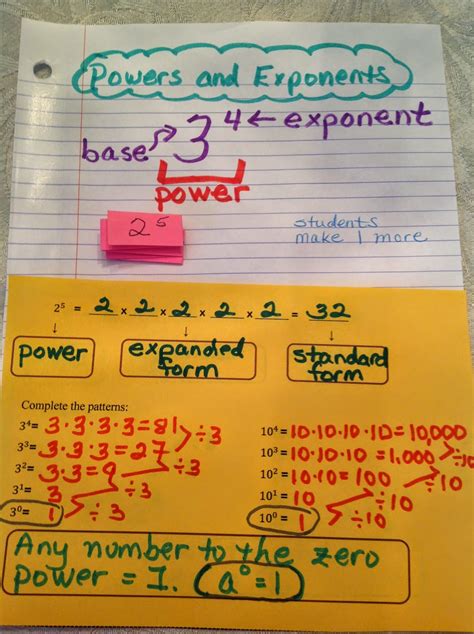 Powers and Exponents
base 3⁴ ← exponent
power
2⁵
students
make 1 more
2⁵ = 2 × 2 × 2 × 2 × 2 = 32
power
expanded form
standard form
Complete the patterns:
3⁴= 3·3·3·3=81
3³= 3·3·3=27 ÷3
3²= 3·3=9 ÷3
3¹= 3 ÷3
3⁰= 1 ÷3
10⁴ = 10·10·10·10=10,000
10³ = 10·10·10=1,000 ÷10
10² = 10·10=100 ÷10
10¹ = 10 ÷10
10⁰ = 1 ÷10
Any number to the zero
power = 1. a⁰=1